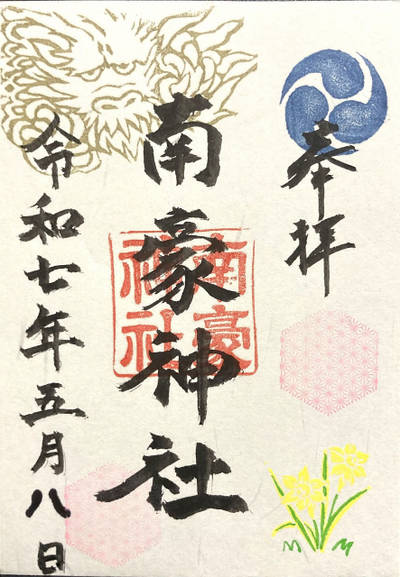 奉拝
南豪神社
南豪神社
令和七年五月八日